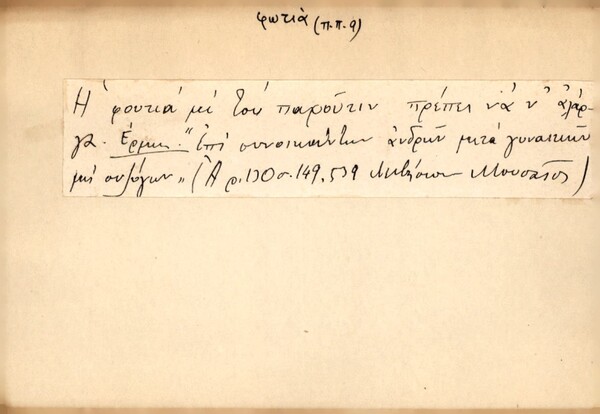 φωτιά (π.π. 9)
Ἡ φουτιά μὶ τοὺ παρούτιν πρέπει νἆ ν' ἀλάρ-
γα. Ἑρμην. "Ἐπὶ συνοικούντων ἀνδρῶν μετὰ γυναικῶν
μὴ συζύγων" (Λ ρ. 130 σ. 149, 539 Μουσαῖος)